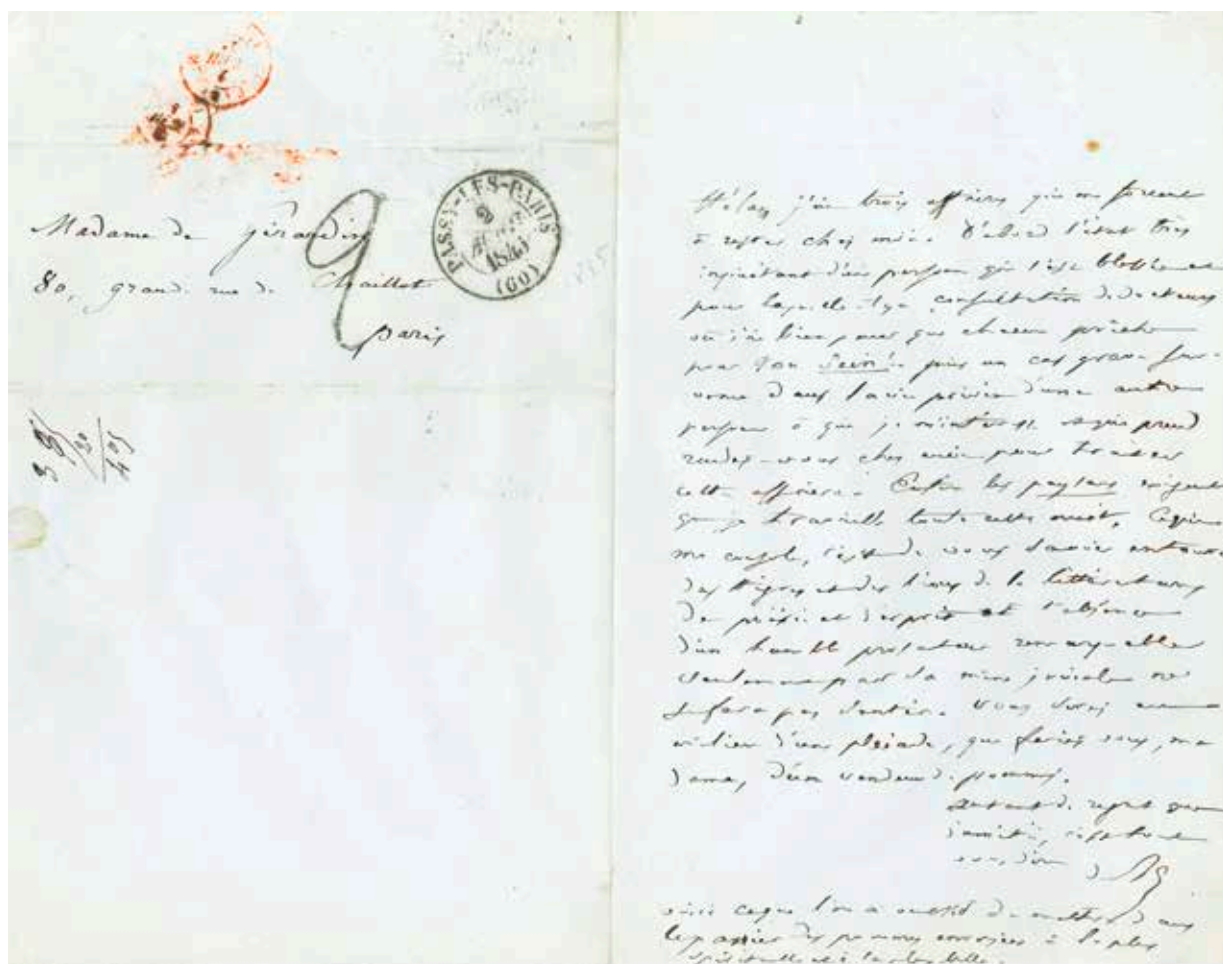 Madame de Girardin
80, grande rue de Chaillot
paris
2
PASSY-LES-PARIS
1845
(60)
Hélas, j'ai trois affaires qui me forcent
à rester chez moi. D'abord l'état très
inquiétant d'une personne qui s'est
pour laquelle il y a consultation de docteurs
où j'ai bien peur que chacun prêche
pour son Sein! puis un cas grave sur-
venu dans la vie privée d'une autre
personne à qui je m'intéresse et qui prend
rendez-vous chez moi pour traiter
cette affaire. Enfin les paysans exigent
que je travaille toute cette nuit. Ce qui
me console, c'est de vous savoir entourée
des tigres et des lions de la littérature
de poésie et d'esprit et l'absence
d'un humble prosateur remarquable
seulement par sa mine joviale ne
se fera pas sentir. Vous serez au
milieu d'une pléiade, que feriez vous, ma
dame, d'un vendeur de pommes.
autant de regret que
d'amitié,
voici ce que l'on a oublié de mettre dans
le panier des pommes envoyées à la plus
spirituelle et à la plus belle.